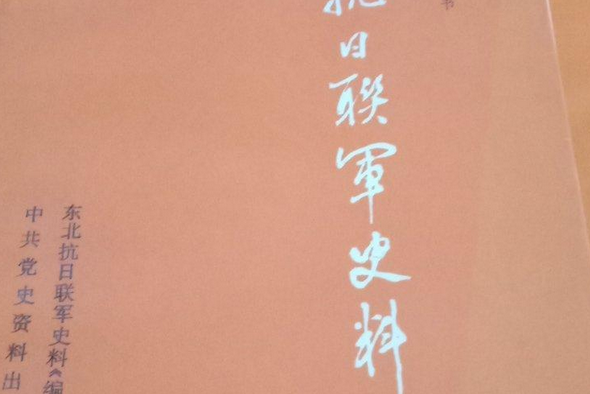 书
抗日聯軍史料
东北抗日联军史料《编
中共党史资料出